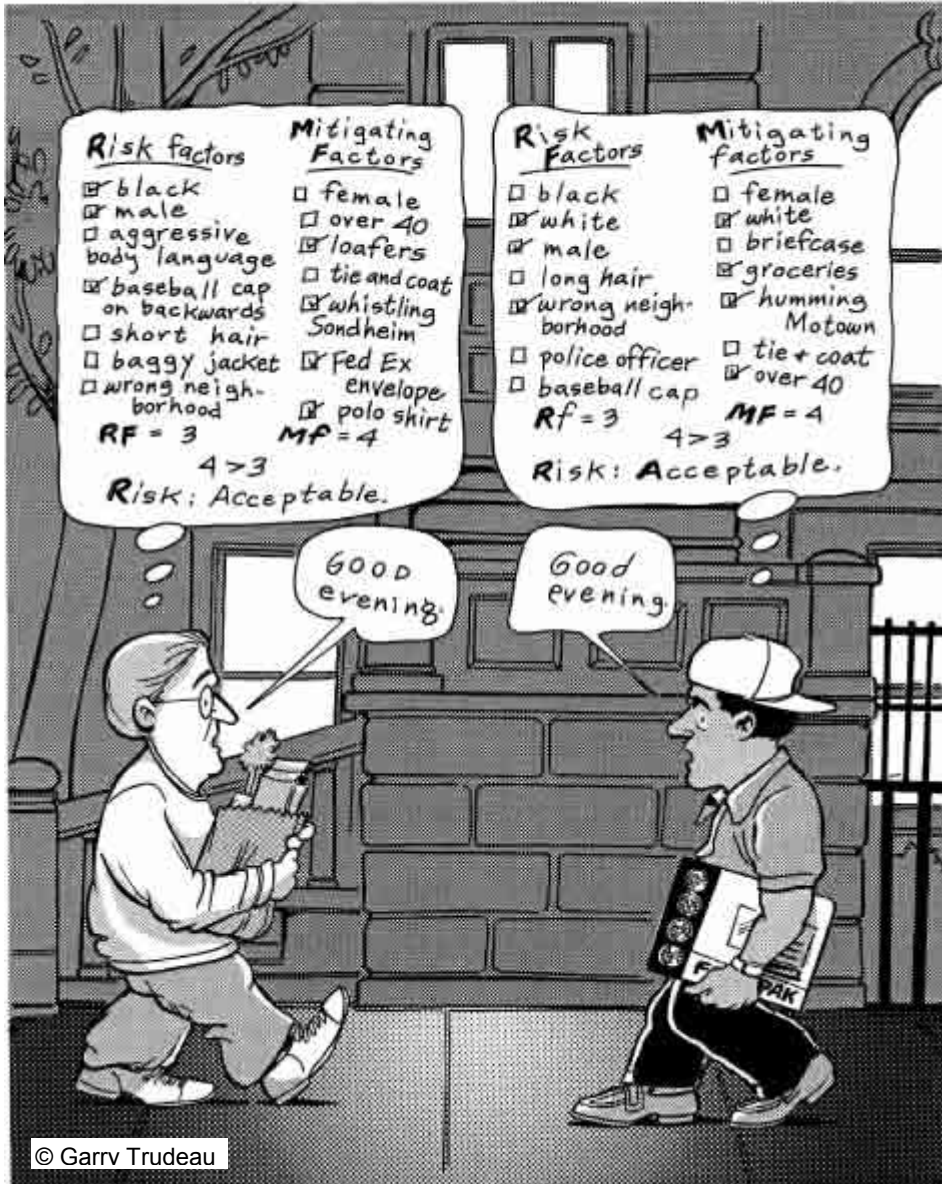 Risk factors
☑ black
☑ male
☐ aggressive
body language
☑ baseball cap
on backwards
☐ short hair
☐ baggy jacket
☐ wrong neigh-
borhood
RF = 3
Mitigating
Factors
☐ female
☐ over 40
☑ loafers
☐ tie and coat
☑ whistling
Sondheim
☑ Fed Ex
envelope
☑ polo shirt
Mf = 4
4 > 3
Risk: Acceptable.
Risk
Factors
☐ black
☑ white
☑ male
☐ long hair
☑ wrong neigh-
borhood
☐ police officer
☐ baseball cap
Rf = 3
Mitigating
factors
☐ female
☑ white
☐ briefcase
☑ groceries
☑ humming
Motown
☐ tie + coat
☑ over 40
MF = 4
4 > 3
Risk: Acceptable.
Good
evening.
Good
evening.
PAK
© Garry Trudeau